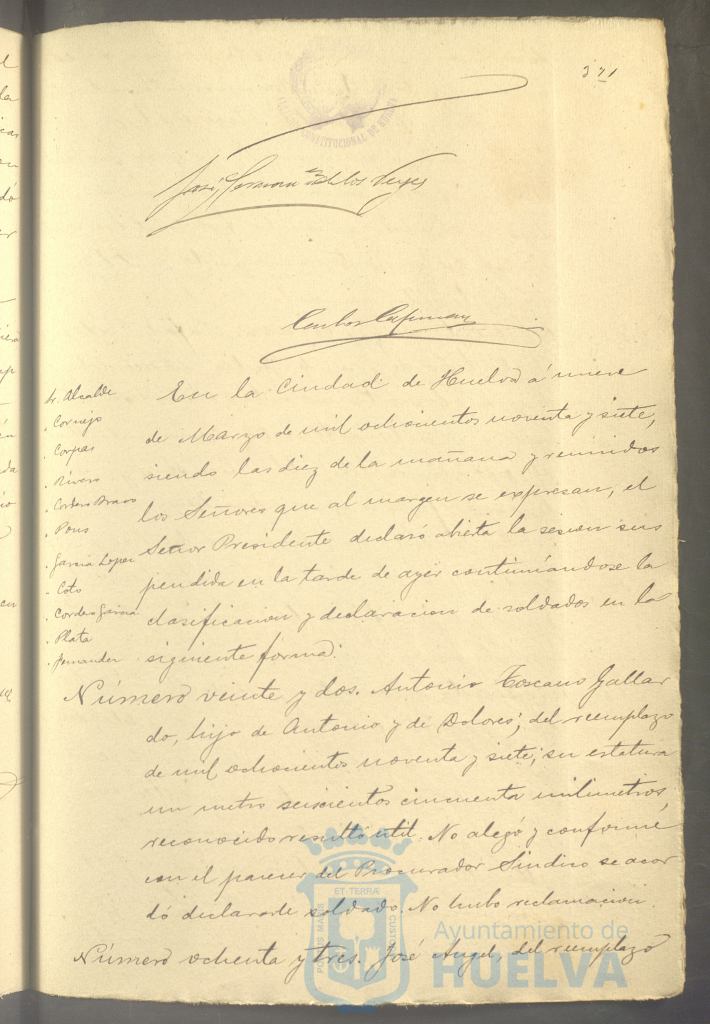 371
CONSTITUCIONAL DE HUELVA
José
de los Reyes
Carlos
Sr. Alcalde
. Cornejo
. Corpas
. Rivero
. Cordero Bravo
. Pons
. García Lopez
. Coto
. Cordero García
. Plata
. Fernandez
En la Ciudad de Huelva á nueve
de Marzo de mil ochocientos noventa y siete,
siendo las diez de la mañana y reunidos
los Señores que al margen se expresan, el
Señor Presidente declaró abierta la sesion sus
pendida en la tarde de ayer continúandose la
clasificacion y declaracion de soldados en la
siguiente forma:
Número veinte y dos. Antonio Toscano Gallar
do, hijo de Antonio y de Dolores, del reemplazo
de mil ochocientos noventa y siete, su estatura
un metro seiscientos cincuenta milimetros,
reconocido resultó util. No alegó y conforme
con el parecer del Procurador Sindico se acor
dó declararle soldado. No hubo reclamacion.
Número ochenta y tres. José Angel, del reemplazo
ET TERRÆ
PORTUS MARIS
CUSTODIA
Ayuntamiento de
HUELVA